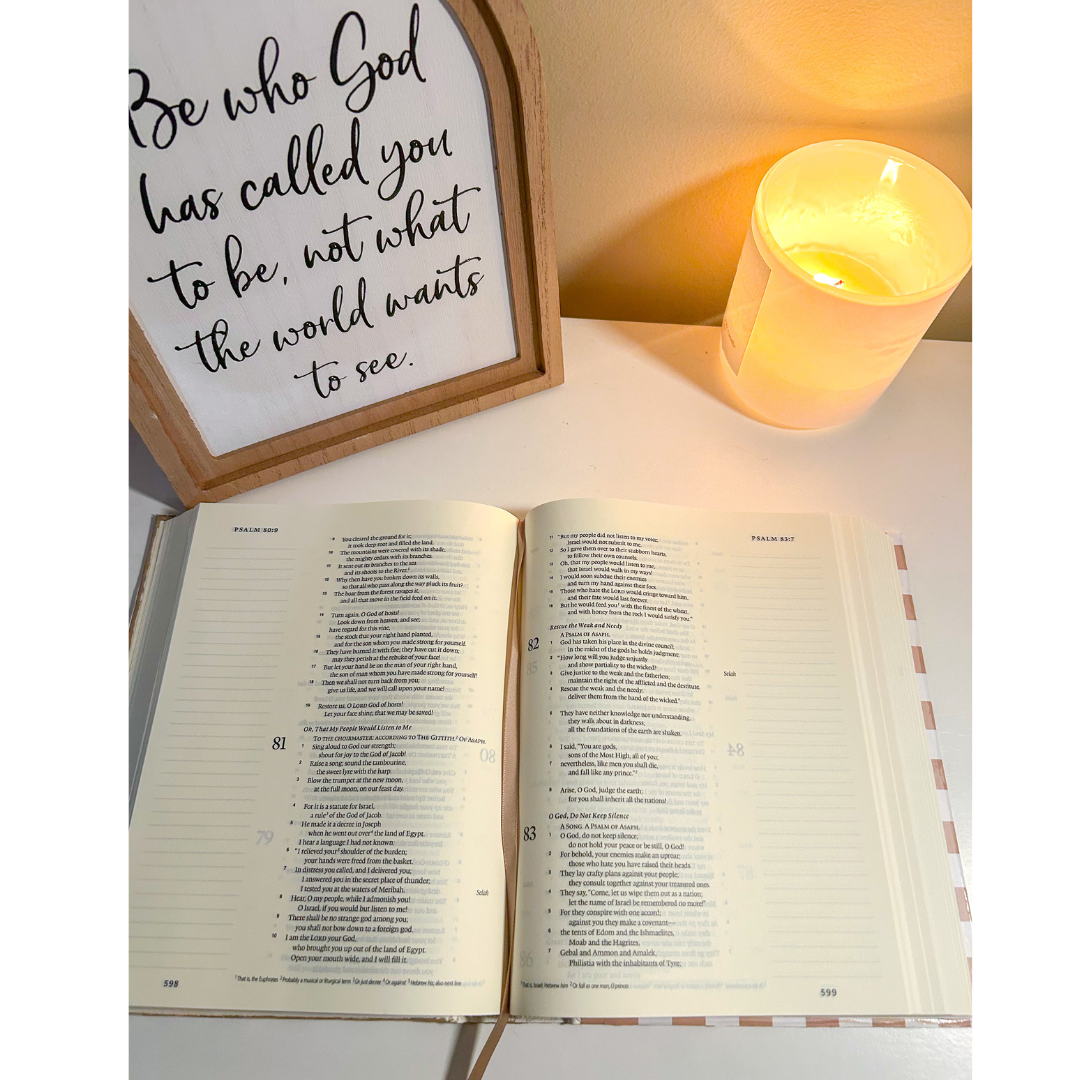 Be who God
has called you
to be, not what
the world wants
to see.
PSALM 80:9
9 You cleared the ground for it;
it took deep root and filled the land.
10 The mountains were covered with its shade,
the mighty cedars with its branches.
11 It sent out its branches to the sea
and its shoots to the River.1
12 Why then have you broken down its walls,
so that all who pass along the way pluck its fruit?
13 The boar from the forest ravages it,
and all that move in the field feed on it.
14 Turn again, O God of hosts!
Look down from heaven, and see;
have regard for this vine,
15 the stock that your right hand planted,
and for the son whom you made strong for yourself.
16 They have burned it with fire; they have cut it down;
may they perish at the rebuke of your face!
17 But let your hand be on the man of your right hand,
the son of man whom you have made strong for yourself!
18 Then we shall not turn back from you;
give us life, and we will call upon your name!
19 Restore us, O LORD God of hosts!
Let your face shine, that we may be saved!
Oh, That My People Would Listen to Me
81 TO THE CHOIRMASTER: ACCORDING TO THE GITTITH.2 OF ASAPH.
1 Sing aloud to God our strength;
shout for joy to the God of Jacob!
2 Raise a song; sound the tambourine,
the sweet lyre with the harp.
3 Blow the trumpet at the new moon,
at the full moon, on our feast day.
4 For it is a statute for Israel,
a rule3 of the God of Jacob.
5 He made it a decree in Joseph
when he went out over4 the land of Egypt.
I hear a language I had not known:
6 "I relieved your5 shoulder of the burden;
your hands were freed from the basket.
7 In distress you called, and I delivered you;
I answered you in the secret place of thunder;
I tested you at the waters of Meribah. Selah
8 Hear, O my people, while I admonish you!
O Israel, if you would but listen to me!
9 There shall be no strange god among you;
you shall not bow down to a foreign god.
10 I am the LORD your God,
who brought you up out of the land of Egypt.
Open your mouth wide, and I will fill it.
1 That is, the Euphrates 2 Probably a musical or liturgical term 3 Or just decree 4 Or against 5 Hebrew his; also next line
598
PSALM 83:7
11 "But my people did not listen to my voice;
Israel would not submit to me.
12 So I gave them over to their stubborn hearts,
to follow their own counsels.
13 Oh, that my people would listen to me,
that Israel would walk in my ways!
14 I would soon subdue their enemies
and turn my hand against their foes.
15 Those who hate the LORD would cringe toward him,
and their fate would last forever.
16 But he would feed you1 with the finest of the wheat,
and with honey from the rock I would satisfy you."
Rescue the Weak and Needy
82 A PSALM OF ASAPH.
1 God has taken his place in the divine council;
in the midst of the gods he holds judgment:
2 "How long will you judge unjustly
and show partiality to the wicked? Selah
3 Give justice to the weak and the fatherless;
maintain the right of the afflicted and the destitute.
4 Rescue the weak and the needy;
deliver them from the hand of the wicked."
5 They have neither knowledge nor understanding,
they walk about in darkness;
all the foundations of the earth are shaken.
6 I said, "You are gods,
sons of the Most High, all of you;
7 nevertheless, like men you shall die,
and fall like any prince."2
8 Arise, O God, judge the earth;
for you shall inherit all the nations!
O God, Do Not Keep Silence
83 A SONG. A PSALM OF ASAPH.
1 O God, do not keep silence;
do not hold your peace or be still, O God!
2 For behold, your enemies make an uproar;
those who hate you have raised their heads.
3 They lay crafty plans against your people;
they consult together against your treasured ones.
4 They say, "Come, let us wipe them out as a nation;
let the name of Israel be remembered no more!"
5 For they conspire with one accord;
against you they make a covenant—
6 the tents of Edom and the Ishmaelites,
Moab and the Hagrites,
7 Gebal and Ammon and Amalek,
Philistia with the inhabitants of Tyre;
1 That is, Israel; Hebrew him 2 Or fall as one man, O princes
599